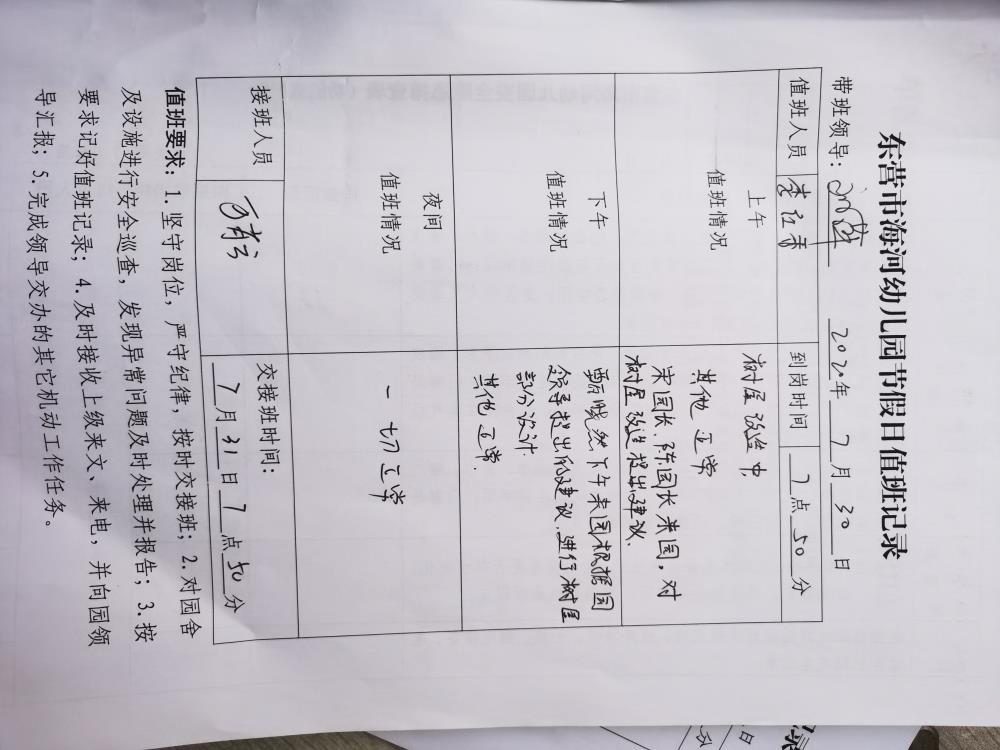 东营市海河幼儿园节假日值班记录
带班领导： 2020年 7 月 30 日
值班人员 李红香 到岗时间 7 点 50 分
上午
值班情况
树屋改造中
其他正常
宋园长、陈园长来园，对
树屋改造提出建议.
下午
值班情况
甄晓然下午来园根据园
领导提出的建议.进行树屋
部分设计.
其他正常.
夜间
值班情况
一切正常
接班人员
交接班时间：
7 月 31 日 7 点 50 分
值班要求：1.坚守岗位，严守纪律，按时交接班；2.对园舍
及设施进行安全巡查，发现异常问题及时处理并报告；3.按
要求记好值班记录；4.及时接收上级来文、来电，并向园领
导汇报；5.完成领导交办的其它机动工作任务。